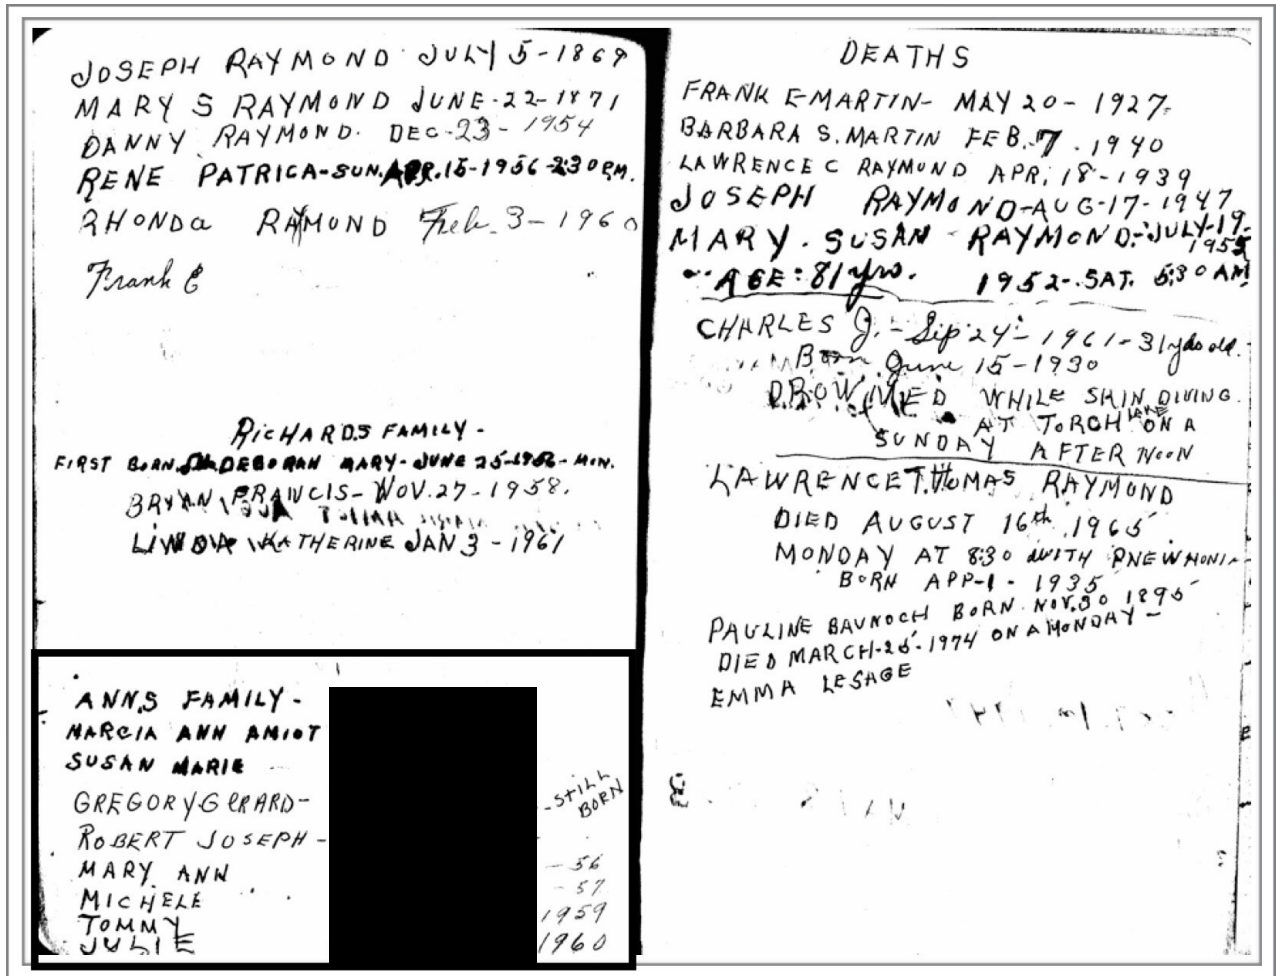 JOSEPH RAYMOND JULY 5-1869
MARY S RAYMOND JUNE-22-1871
DANNY RAYMOND. DEC-23-1954
RENE PATRICA-SUN. APR. 15-1956-2:30 P.M.
RHONDa RAYMOND Feb. 3-1960
Frank E
RICHARDS FAMILY-
FIRST BORN. DEBORAH MARY-JUNE 25-
BRYAN FRANCIS-NOV. 27-1958.
LINDA KATHERINE JAN 3-1961
ANNS FAMILY-
MARCIA ANN AMIOT
SUSAN MARIE
GREGORY GERARD- -STILL BORN
ROBERT JOSEPH-
MARY ANN -56
MICHELE -57
TOMMY 1959
JULIE 1960
DEATHS
FRANK E MARTIN- MAY 20-1927
BARBARA S. MARTIN FEB. 7. 1940
LAWRENCE C RAYMOND APR. 18-1939
JOSEPH RAYMOND-AUG-17-1947
MARY. SUSAN RAYMOND-JULY-19-
1955
AGE: 81 yrs. 1952-SAT. 5:30 AM
CHARLES J.-Sep 24-1961-31 old.
Born June 15-1930
DROWNED WHILE SKIN DIVING
AT TORCH LAKE ON A
SUNDAY AFTER NOON
LAWRENCE THOMAS RAYMOND
DIED AUGUST 16th, 1965
MONDAY AT 8:30 WITH PNEWMONI
BORN APP-1-1935
PAULINE BORN NOV. 30 1895
DIED MARCH-25-1974 ON A MONDAY-
EMMA LESAGE